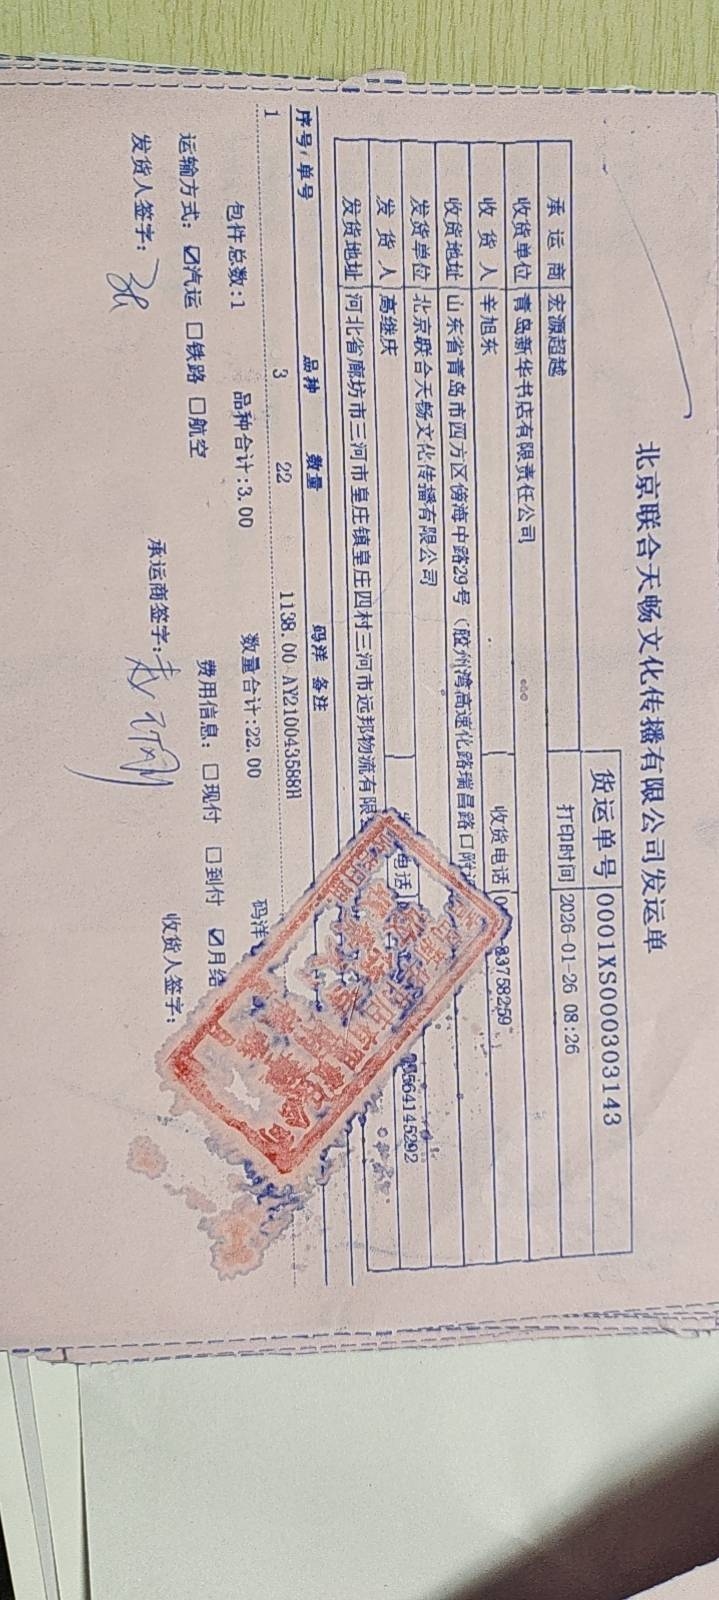 北京联合天畅文化传播有限公司发运单
货运单号 0001XS000303143
打印时间 2026-01-26 08:26
承运商 宏源超越
收货单位 青岛新华书店有限责任公司
收货人 辛旭东 收货电话 83758259
收货地址 山东省青岛市四方区傍海中路29号（胶州湾高速化路瑞昌路口附近
发货单位 北京联合天畅文化传播有限公司
发货人 高继庆 电话 15564145292
发货地址 河北省廊坊市三河市皇庄镇皇庄四村三河市远邦物流有限
序号/单号 品种 数量 码洋 备注
1 3 22 1138.00 AY210043588H
包件总数:1 品种合计:3.00 数量合计:22.00 码洋
运输方式: ☑汽运 □铁路 □航空 费用信息: □现付 □到付 ☑月结
发货人签字: 承运商签字: 收货人签字: